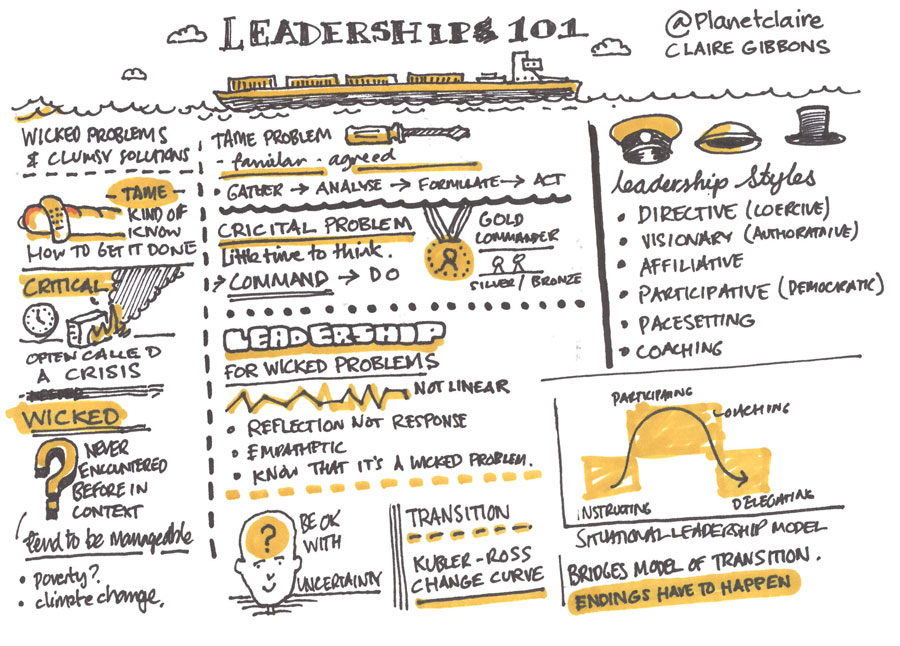 LEADERSHIPS 101
@Planetclaire
CLAIRE GIBBONS
WICKED PROBLEMS
& CLUMSY SOLUTIONS
- TAME -
KIND OF
KNOW
HOW TO GET IT DONE
CRITICAL
OFTEN CALLED
A CRISIS
WICKED
?
NEVER
ENCOUNTERED
BEFORE IN
CONTEXT
tend to be manageable
• poverty?
• climate change.
TAME PROBLEM
- familar - agreed
• GATHER → ANALYSE → FORMULATE → ACT
CRICITAL PROBLEM
little time to think.
→ COMMAND → DO
GOLD
COMMANDER
SILVER / BRONZE
LEADERSHIP
FOR WICKED PROBLEMS
NOT LINEAR
• REFLECTION NOT RESPONSE
• EMPATHETIC
• KNOW THAT IT'S A WICKED PROBLEM.
?
BE OK
WITH
UNCERTAINTY
TRANSITION
KUBLER-ROSS
CHANGE CURVE
leadership styles
• DIRECTIVE (COERCIVE)
• VISIONARY (AUTHORATAIVE)
• AFFILIATIVE
• PARTICIPATIVE (DEMOCRATIC)
• PACESETTING
• COACHING
PARTICIPATING
COACHING
INSTRUCTING
DELEGATING
SITUATIONAL LEADERSHIP MODEL
BRIDGES MODEL OF TRANSITION.
ENDINGS HAVE TO HAPPEN